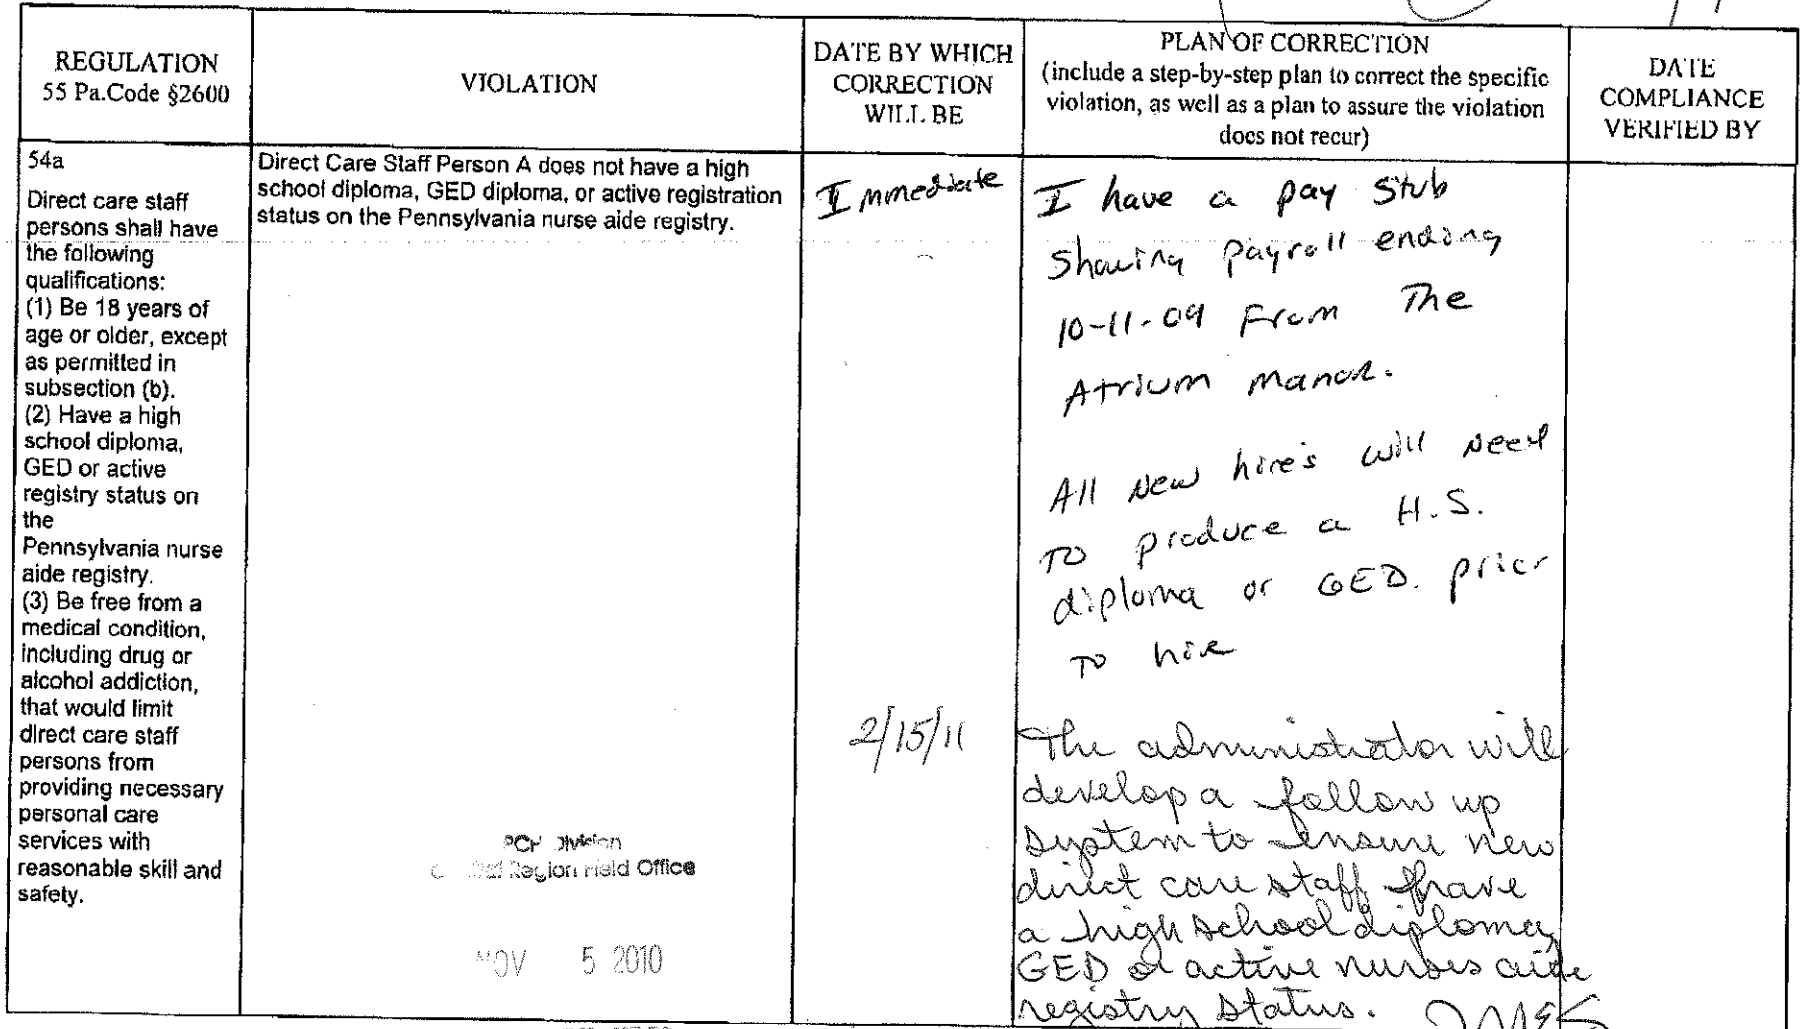 REGULATION
55 Pa.Code §2600
VIOLATION
DATE BY WHICH
CORRECTION
WILL BE
PLAN OF CORRECTION
(include a step-by-step plan to correct the specific
violation, as well as a plan to assure the violation
does not recur)
DATE
COMPLIANCE
VERIFIED BY
54a
Direct care staff
persons shall have
the following
qualifications:
(1) Be 18 years of
age or older, except
as permitted in
subsection (b).
(2) Have a high
school diploma,
GED or active
registry status on
the
Pennsylvania nurse
aide registry.
(3) Be free from a
medical condition,
including drug or
alcohol addiction,
that would limit
direct care staff
persons from
providing necessary
personal care
services with
reasonable skill and
safety.
Direct Care Staff Person A does not have a high
school diploma, GED diploma, or active registration
status on the Pennsylvania nurse aide registry.
PCH Division
Region Field Office
NOV 5 2010
Immediate
2/15/11
I have a pay stub
Showing payroll ending
10-11-09 From The
Atrium manor.
All New hire's will Need
TO produce a H.S.
diploma or GED. prior
TO hire
The administrator will
develop a follow up
system to ensure new
direct care staff have
a high school diploma,
GED or active nurses aide
registry status.